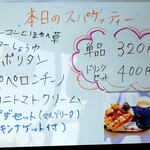 本日のスパゲッティー
ーコンとほうれん草
ターしょうゆ
ポリタン
ペペロンチーノ
コニトマトクリーム
ダセット(マルゲリータ)
キンゲット付)
単品 320円
ドリンクセット 400円